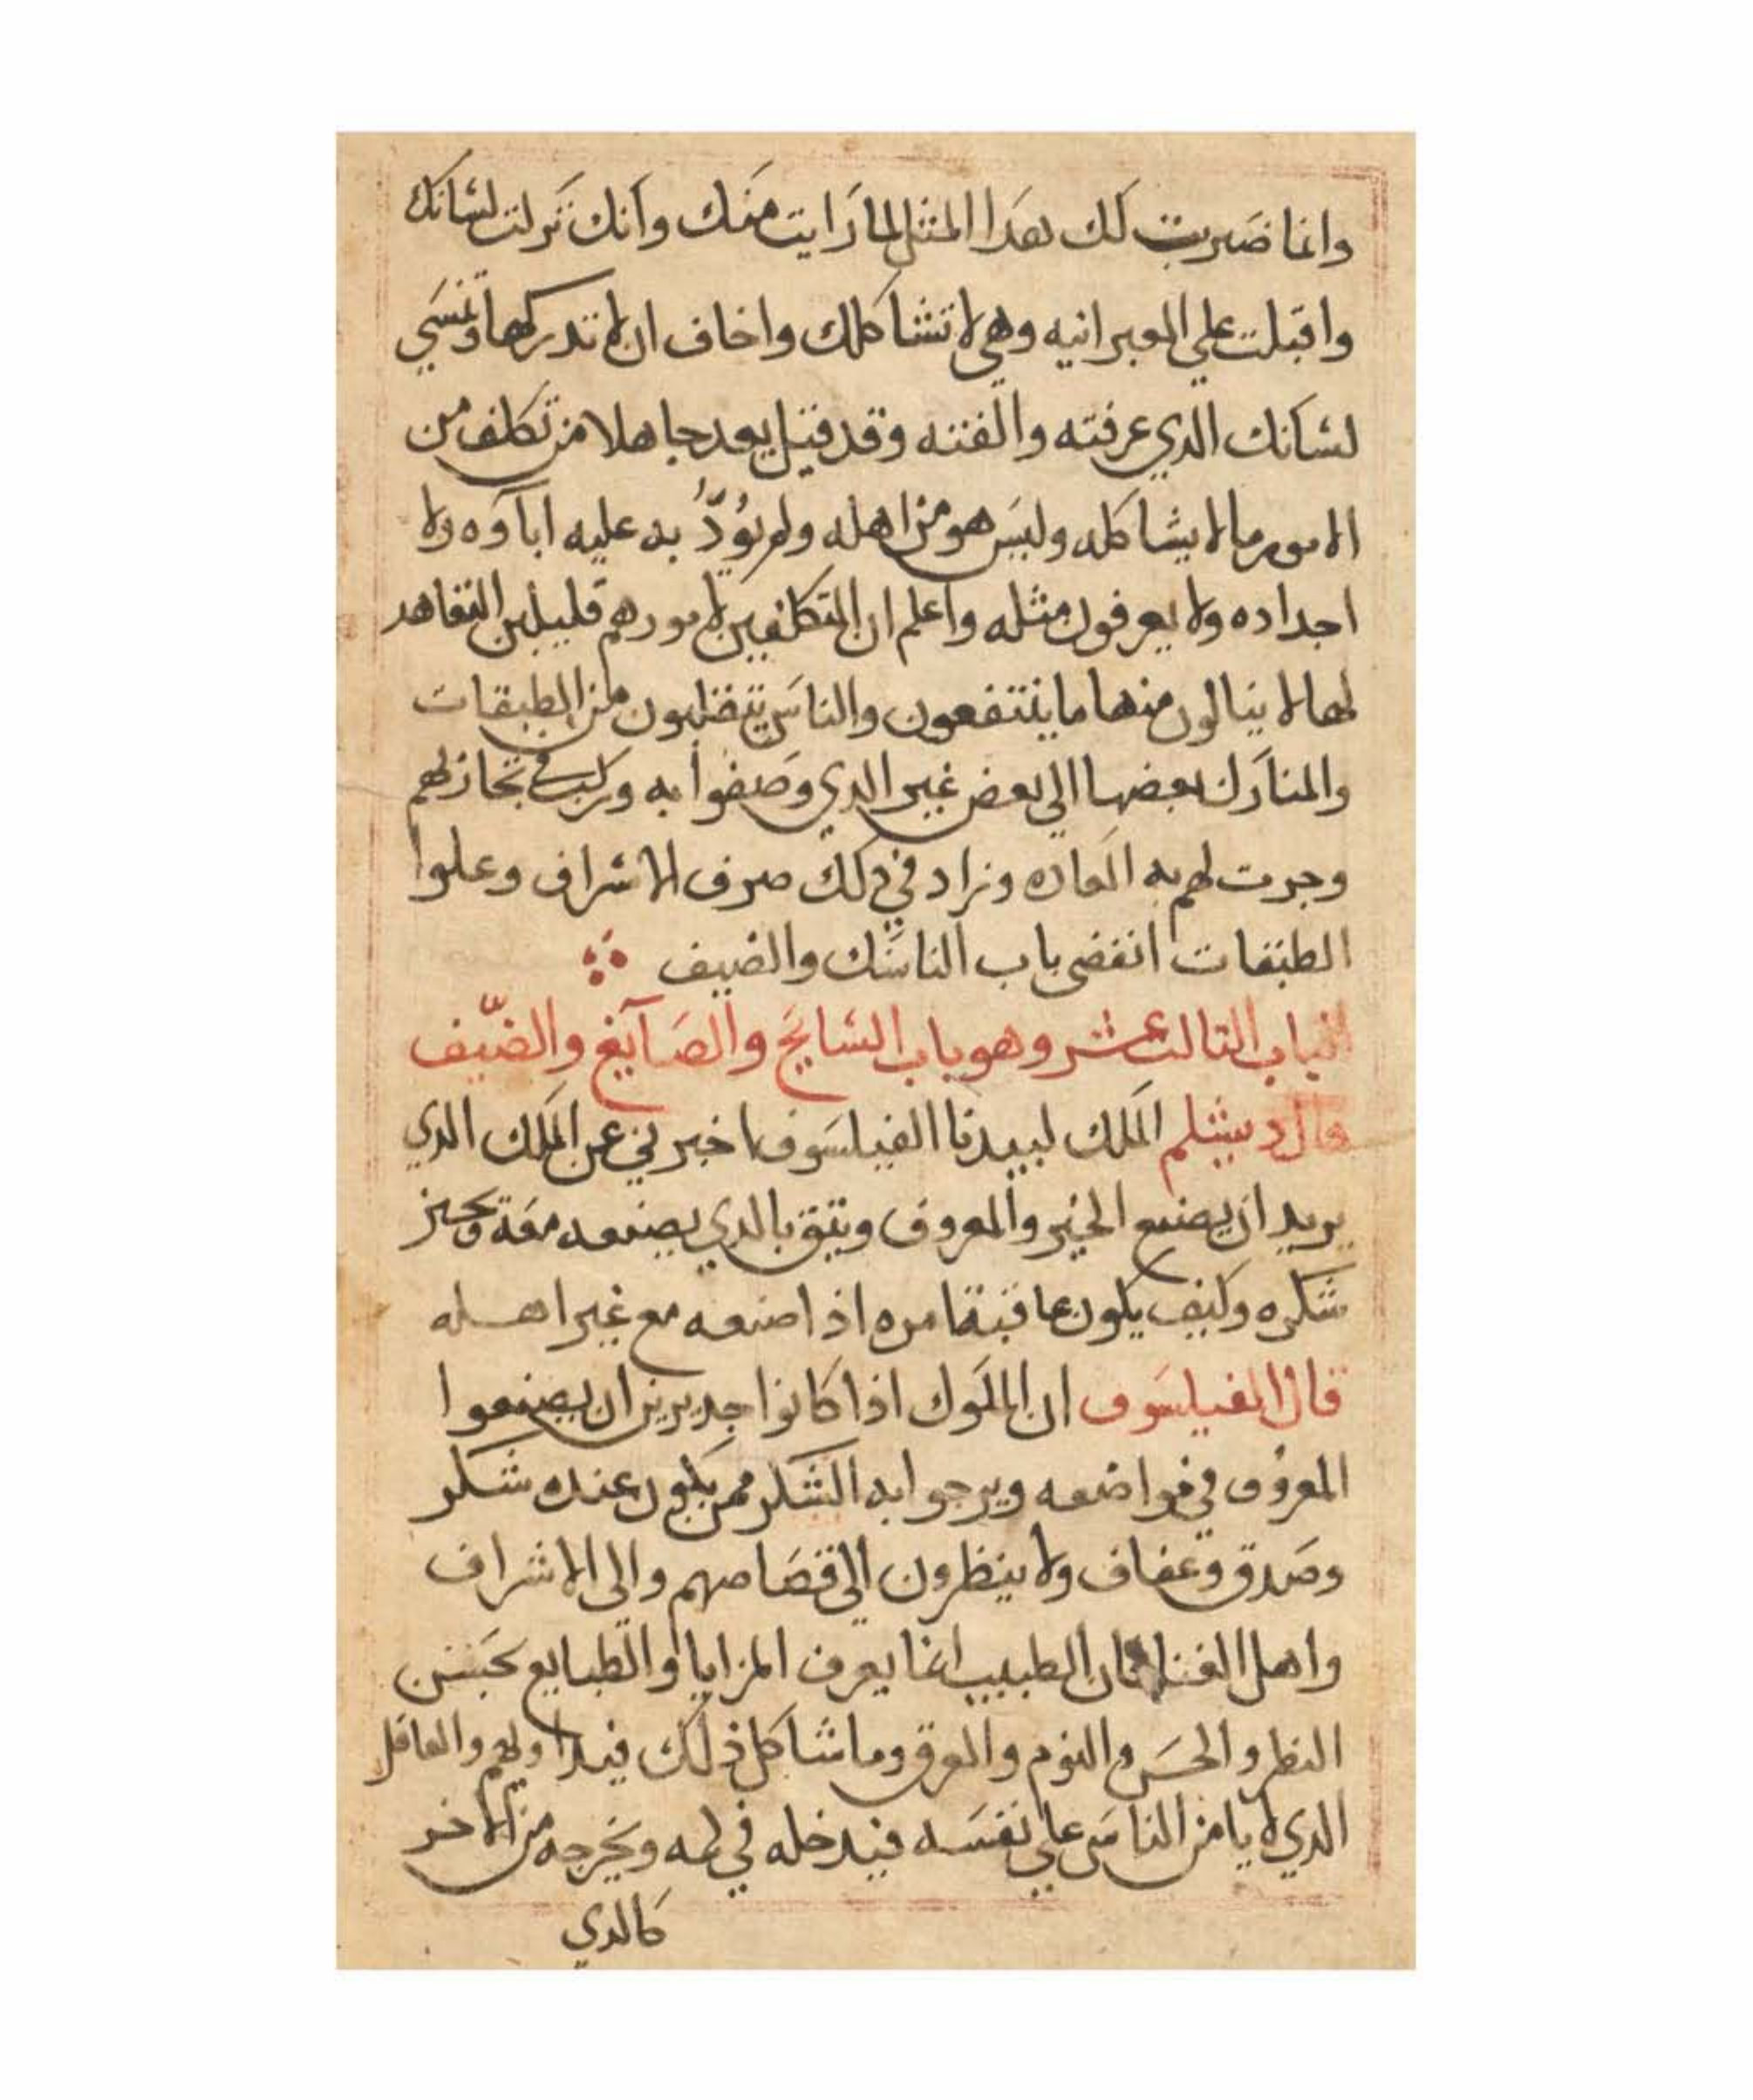 وانما ضربت لك هدا المثل لما رايت منك وانك تركت لسانك
واقبلت علي العبرانيه وهي لا تشاكلك واخاف ان لا تدركها وتنسي
لسانك الدي عرفته والفته وقد قيل يعد جاهلا من تكلف من
الامور ما لا يشاكله وليس هو من اهله ولم يؤدّبه عليه اباوه ولا
اجداده ولا يعرفون مثله واعلم ان المتكلفين لامورهم قليلين التعاهد
لها لا ينالون منها ما ينتفعون والناس ينتقلون من الطبقات
والمنازل بعضها الي بعض غير الدي وصفوا به وركب في
وجرت لهم به العاده وزاد في دلك صرف الاشراف وعلوا
الطبقات انقضي باب الناسك والضيف
الباب التالت عشر وهو باب السايح والصآيغ والضيف
قال دبشلم الملك لبيدبا الفيلسوف اخبرني عن الملك الدي
يريد ان يصنع الخير والمعروف ويتق بالدي يصنعه معه
شكره وكيف يكون عاقبة امره اذا صنعه مع غير اهله
قال الفيلسوف ان الملوك اذا كانوا جديرين ان يصنعوا
المعروف في مواضعه ويرجوا به الشكر ممن يكون عنده شكر
وصدق وعفاف ولا ينظرون الي والي الاشراف
واهل فان الطبيب انما يعرف المزايا والطبايع بحسن
النظر والحس والنوم والعرق وما شاكل ذلك والعاقل
الدي لا يامن الناس علي نفسه فيدخله في كمه ويخرجه من الاخر
كالدي